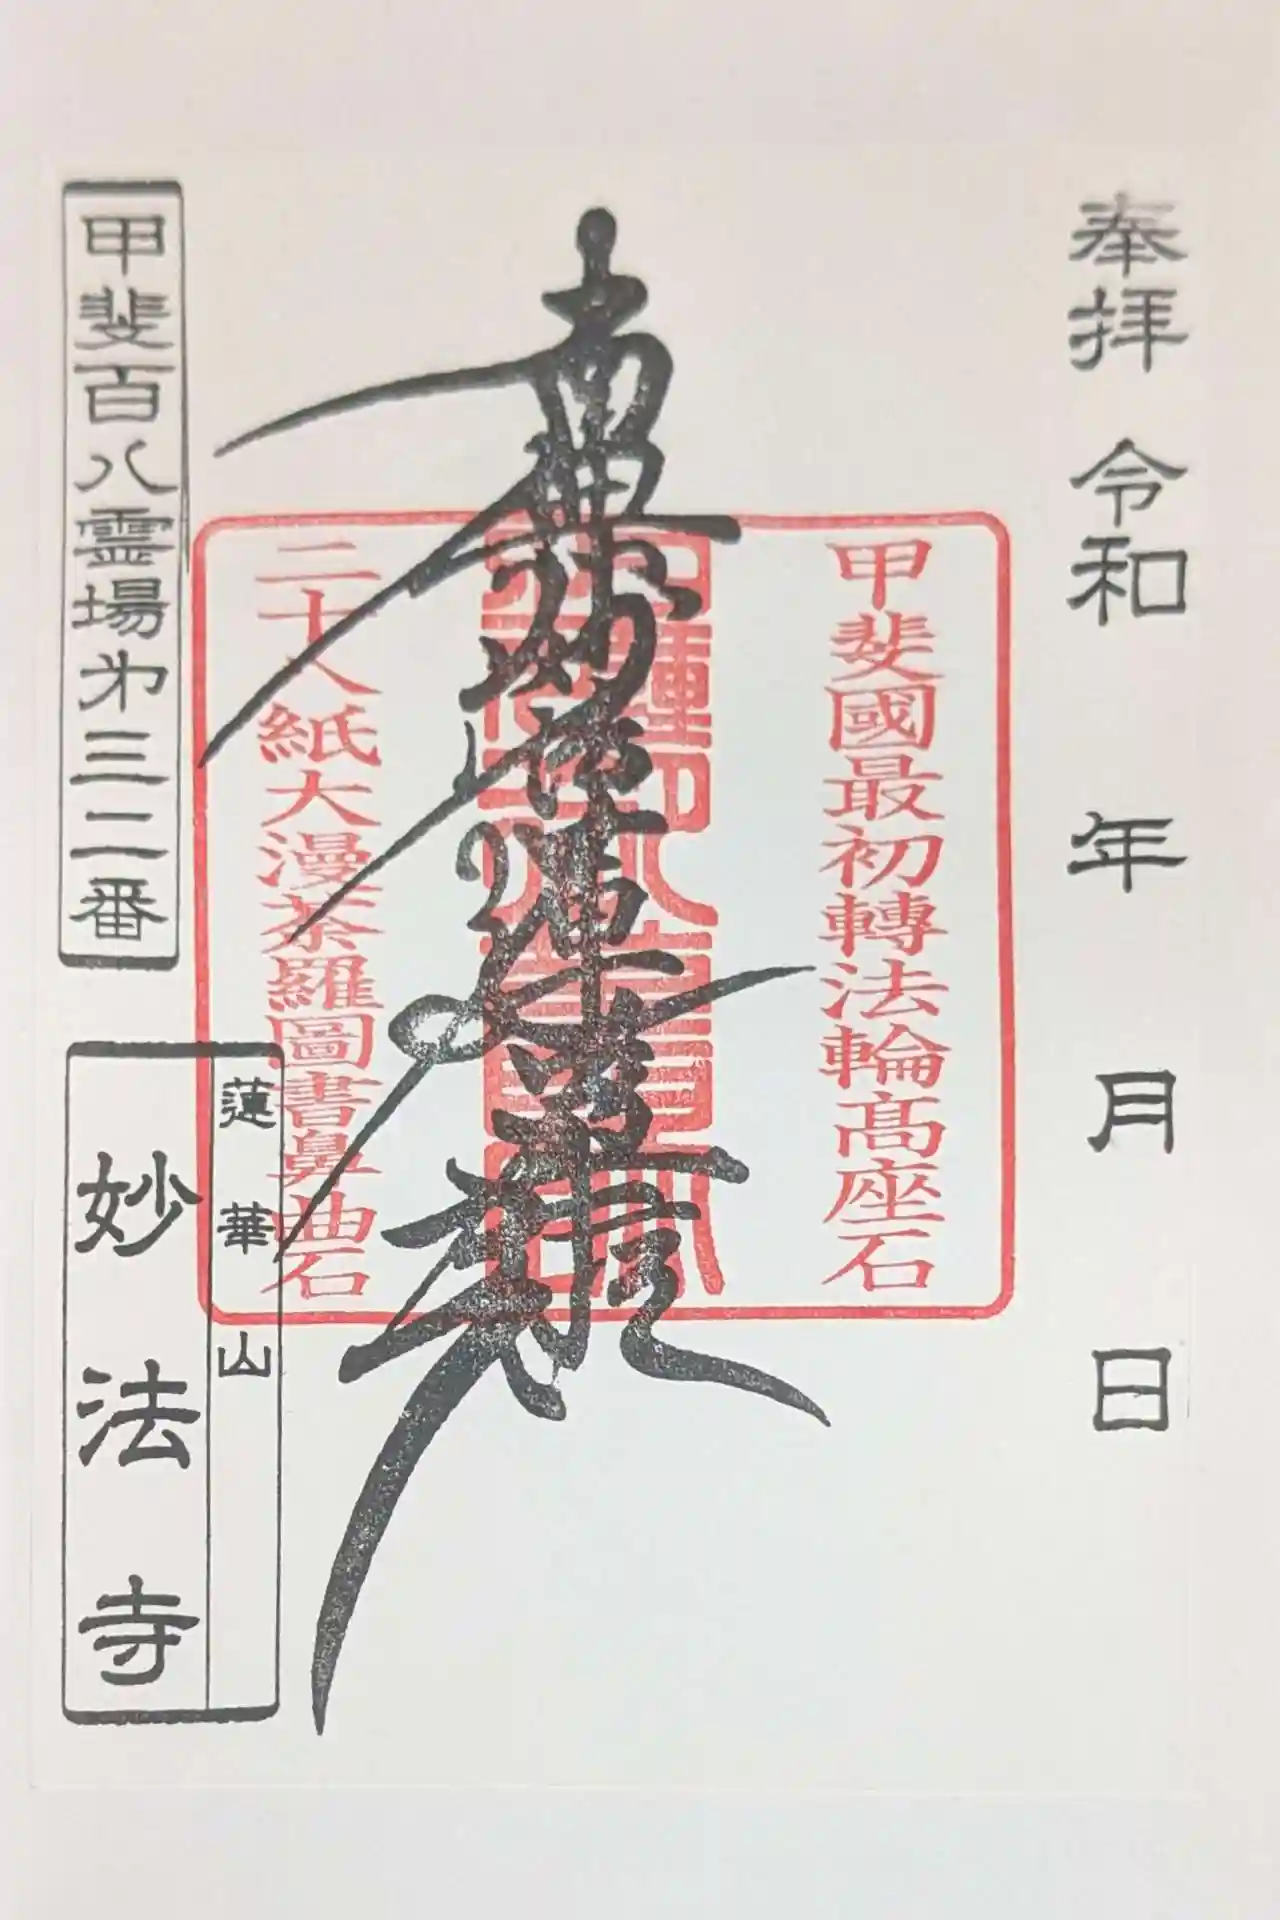 奉拝 令和 年 月 日
甲斐國最初轉法輪高座石
南無妙法蓮華経
二十八紙大漫荼羅圖書鼻曲石
甲斐百八霊場第三二番
蓮華山
妙法寺